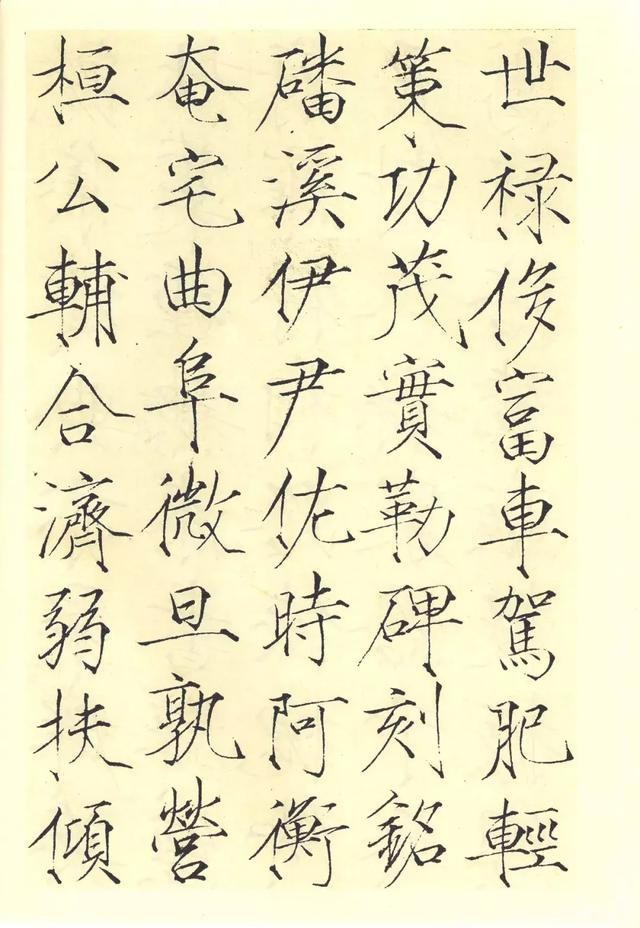 世禄侈富車駕肥輕
策功茂實勒碑刻銘
磻溪伊尹佐時阿衡
奄宅曲阜微旦孰營
桓公輔合濟弱扶傾